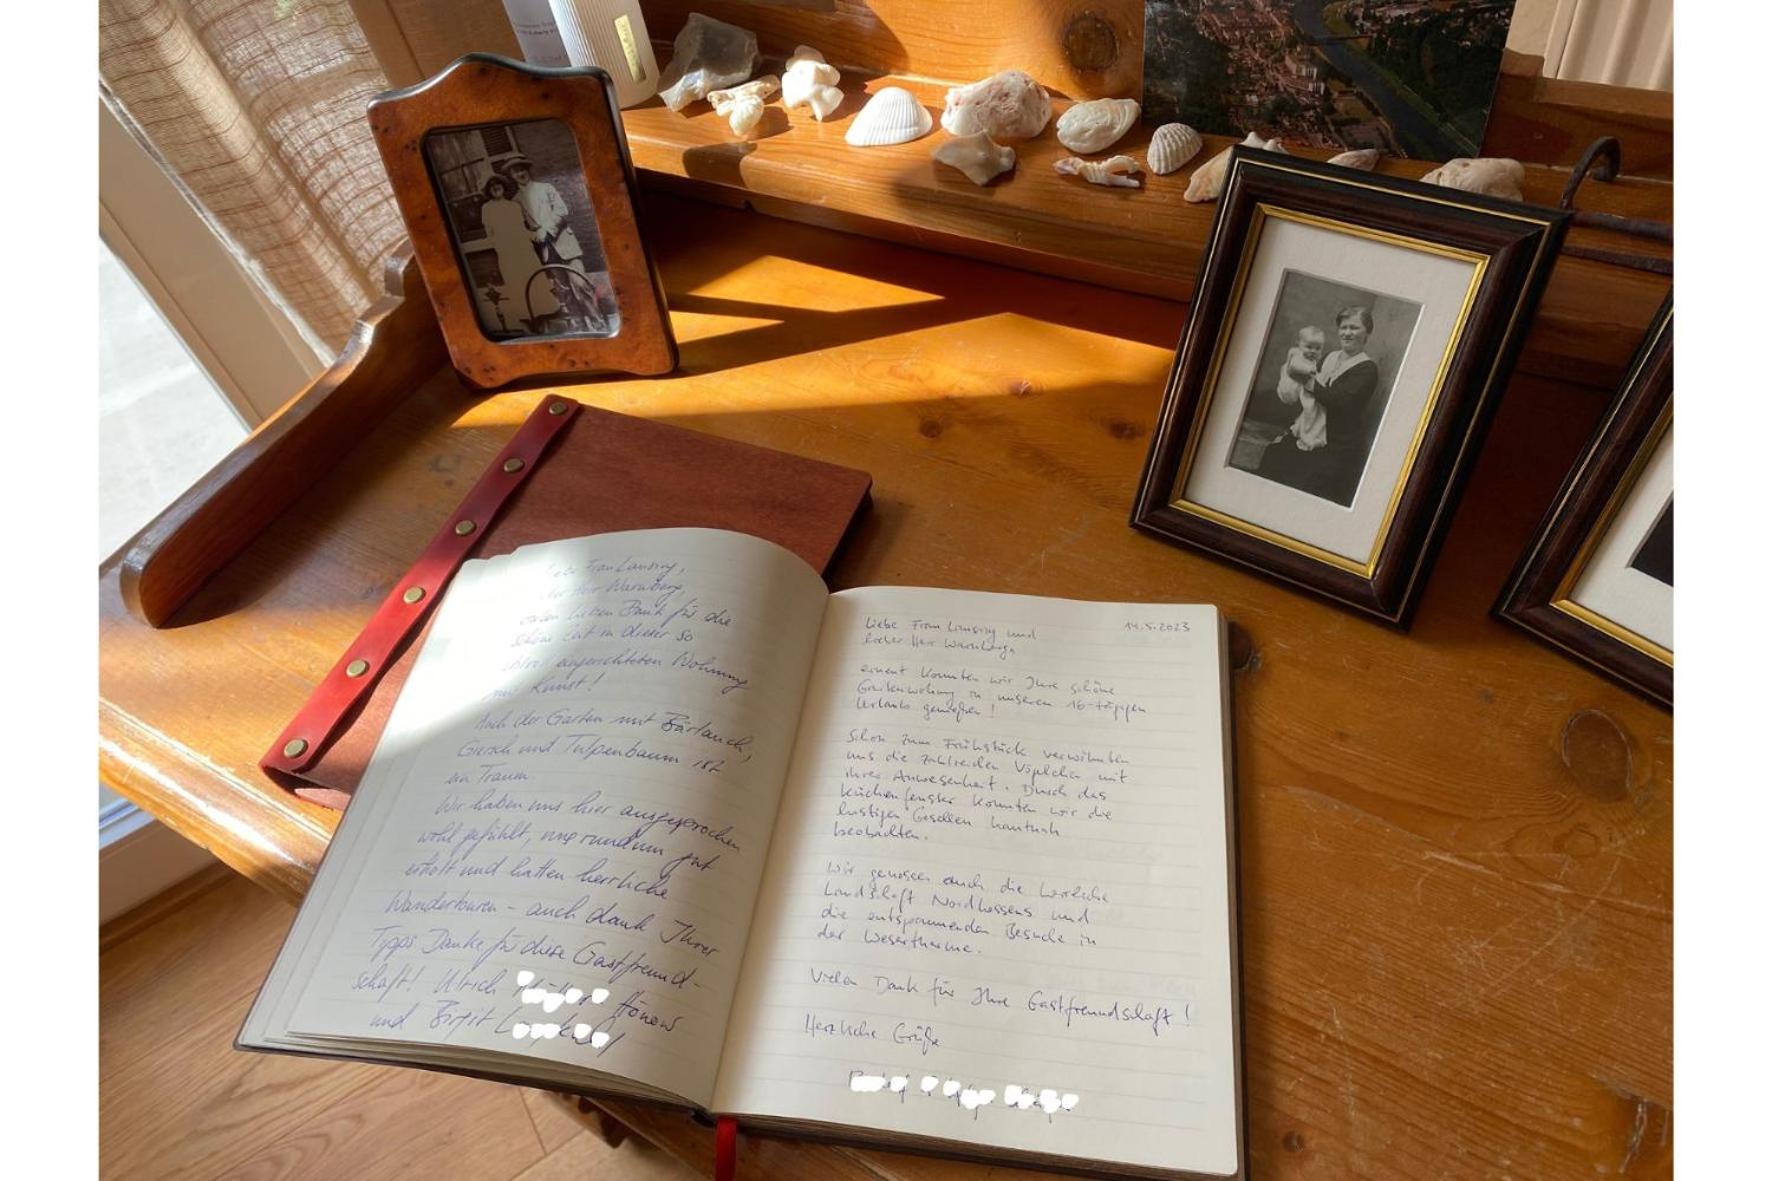 Liebe Frau Lansing,
Herr Warnberg,
vielen lieben Dank für die
schöne Zeit in dieser so
eingerichteten Wohnung
mit Kunst!
Auch der Garten mit Bärlauch,
Giersch und Tulpenbaum ist
ein Traum.
Wir haben uns hier ausgesprochen
wohl gefühlt, uns rundum gut
erholt und hatten herrliche
Wandertouren - auch dank Ihrer
Tipps. Danke für diese Gastfreund-
schaft! Ulrich Hönow
und Birgit
14.5.2023
Liebe Frau Lansing und
lieber Herr Warnberg,
erneut konnten wir Ihre schöne
Gartenwohnung in unserem 16-tägigen
Urlaub genießen!
Schon zum Frühstück verwöhnten
uns die zahlreichen Vöglchen mit
ihrer Anwesenheit. Durch das
Küchenfenster konnten wir die
lustigen Gesellen hautnah
beobachten.
Wir genossen auch die herrliche
Landschaft Nordhessens und
die entspannenden Besuche in
der Wesertherme.
Vielen Dank für Ihre Gastfreundschaft!
Herzliche Grüße